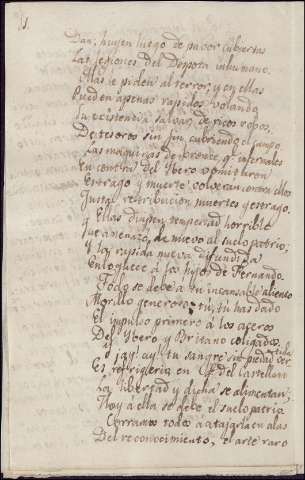 Dan; huyen luego de pavor cubiertas
Las legiones del Despota inhumano.
Alas le piden al terror, y en ellas
Pueden apenas rapidos volando
Su existencia salvar, de ricos robos,
De tesoros sin fin cubriendo el campo.
Las maquinas de bronce, q.e infernales
En contra del Ibero vomitaron
Estrago y muerte, vuelven contra ellos
Justa retribucion, muertes y estrago.
Ellas disipen tempestad horrible
Que amenaza de nuevo al suelo patrio;
Y la rapida nueva difundida
Enloquece á los hijos de Fernando.
Todo se debe á tu incansable aliento
Morillo generoso; tu, tu has dado
El impulso primero á los aceros
Del Ybero y Britano coligados.
¡ay! ay! tu sangre sin piedad vertida
Es refrigerio en q.e del Castellano
La libertad y dicha se alimentan;
Hoy á ella se debe el suelo patrio
Corramos todos á atajarla en alas
Del reconocimiento, el arte raro